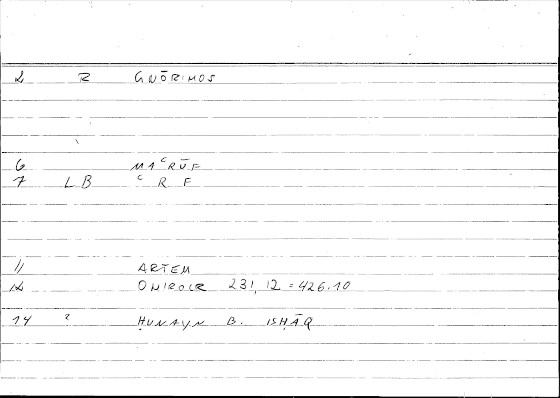 2 R GNŌRIMOS
6 MAᶜRŪF
7 LB ᶜ R F
11 ARTEM
12 ONIROCR 231, 12 = 426.10
14 ² ḤUNAYN B. ISḤĀQ